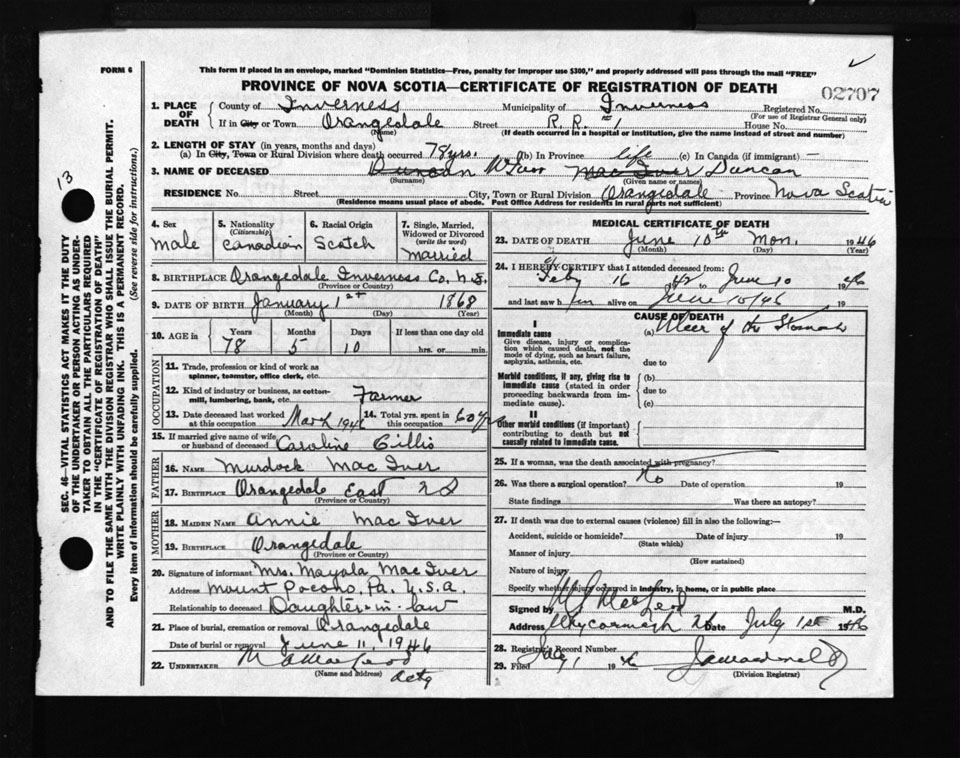 FORM 6
This form if placed in an envelope, marked "Dominion Statistics—Free, penalty for improper use $300," and properly addressed will pass through the mail "FREE"
PROVINCE OF NOVA SCOTIA—CERTIFICATE OF REGISTRATION OF DEATH
02707
13
SEC. 46—VITAL STATISTICS ACT MAKES IT THE DUTY
OF THE UNDERTAKER OR PERSON ACTING AS UNDER-
TAKER TO OBTAIN ALL THE PARTICULARS REQUIRED
IN THE "CERTIFICATE OF REGISTRATION OF DEATH"
AND TO FILE THE SAME WITH THE DIVISION REGISTRAR WHO SHALL ISSUE THE BURIAL PERMIT.
WRITE PLAINLY WITH UNFADING INK. THIS IS A PERMANENT RECORD.
Every item of information should be carefully supplied. (See reverse side for instructions.)
1. PLACE OF DEATH County of Inverness Municipality of Inverness Registered No.
(For use of Registrar General only)
If in City or Town Orangedale Street R. R. #1 House No.
(Name) (If death occurred in a hospital or institution, give name instead of street and number)
2. LENGTH OF STAY (in years, months and days)
(a) In City, Town or Rural Division where death occurred 78 yrs. (b) In Province life (c) In Canada (if immigrant) —
3. NAME OF DECEASED Duncan MacIver Duncan
(Surname) (Given name or names)
RESIDENCE No. Street City, Town or Rural Division Orangedale Province Nova Scotia
(Residence means usual place of abode. Post Office Address for residents in rural parts not sufficient)
4. Sex male
5. Nationality (Citizenship) Canadian
6. Racial Origin Scotch
7. Single, Married, Widowed or Divorced (write the word) married
8. BIRTHPLACE Orangedale Inverness Co, N.S.
(Province or Country)
9. DATE OF BIRTH January 1st 1868
(Month) (Day) (Year)
10. AGE in Years 78 Months 5 Days 10 If less than one day old
hrs. or min.
OCCUPATION
11. Trade, profession or kind of work as spinner, teamster, office clerk, etc.
12. Kind of industry or business, as cotton-mill, lumbering, bank, etc. Farmer
13. Date deceased last worked at this occupation March 1946
14. Total yrs. spent in this occupation 60 yrs
15. If married give name of wife or husband of deceased Caroline Gillis
FATHER
16. NAME Murdock MacIver
17. BIRTHPLACE Orangedale East N S
(Province or Country)
MOTHER
18. MAIDEN NAME Annie MacIver
19. BIRTHPLACE Orangedale
(Province or Country)
20. Signature of informant Mrs. Mayola MacIver
Address Mount Pocono, Pa. U.S.A.
Relationship to deceased Daughter-in-law
21. Place of burial, cremation or removal Orangedale
Date of burial or removal June 11, 1946
22. UNDERTAKER
(Name and address)
MEDICAL CERTIFICATE OF DEATH
23. DATE OF DEATH June 10th Mon. 1946
(Month) (Day) (Year)
24. I HEREBY CERTIFY that I attended deceased from
Feby 16 42 to June 10 1946
and last saw him alive on June 10/46 19
CAUSE OF DEATH
I
Immediate cause
Give disease, injury or complication which caused death, not the mode of dying, such as heart failure, asphyxia, asthenia, etc.
(a) Ulcer of the Stomach
due to
Morbid conditions, if any, giving rise to immediate cause (stated in order proceeding backwards from immediate cause).
(b)
due to
(c)
II
Other morbid conditions (if important) contributing to death but not causally related to immediate cause.
25. If a woman, was the death associated with pregnancy?
26. Was there a surgical operation? No Date of operation 19
State findings Was there an autopsy?
27. If death was due to external causes (violence) fill in also the following:—
Accident, suicide or homicide? Date of injury 19
(State which)
Manner of injury
(How sustained)
Nature of injury
Specify whether injury occurred in industry, in home, or in public place
Signed by M.D.
Address Whycocomagh NS Date July 1st 1946
28. Registrar's Record Number
29. Filed July 1 1946
(Division Registrar)